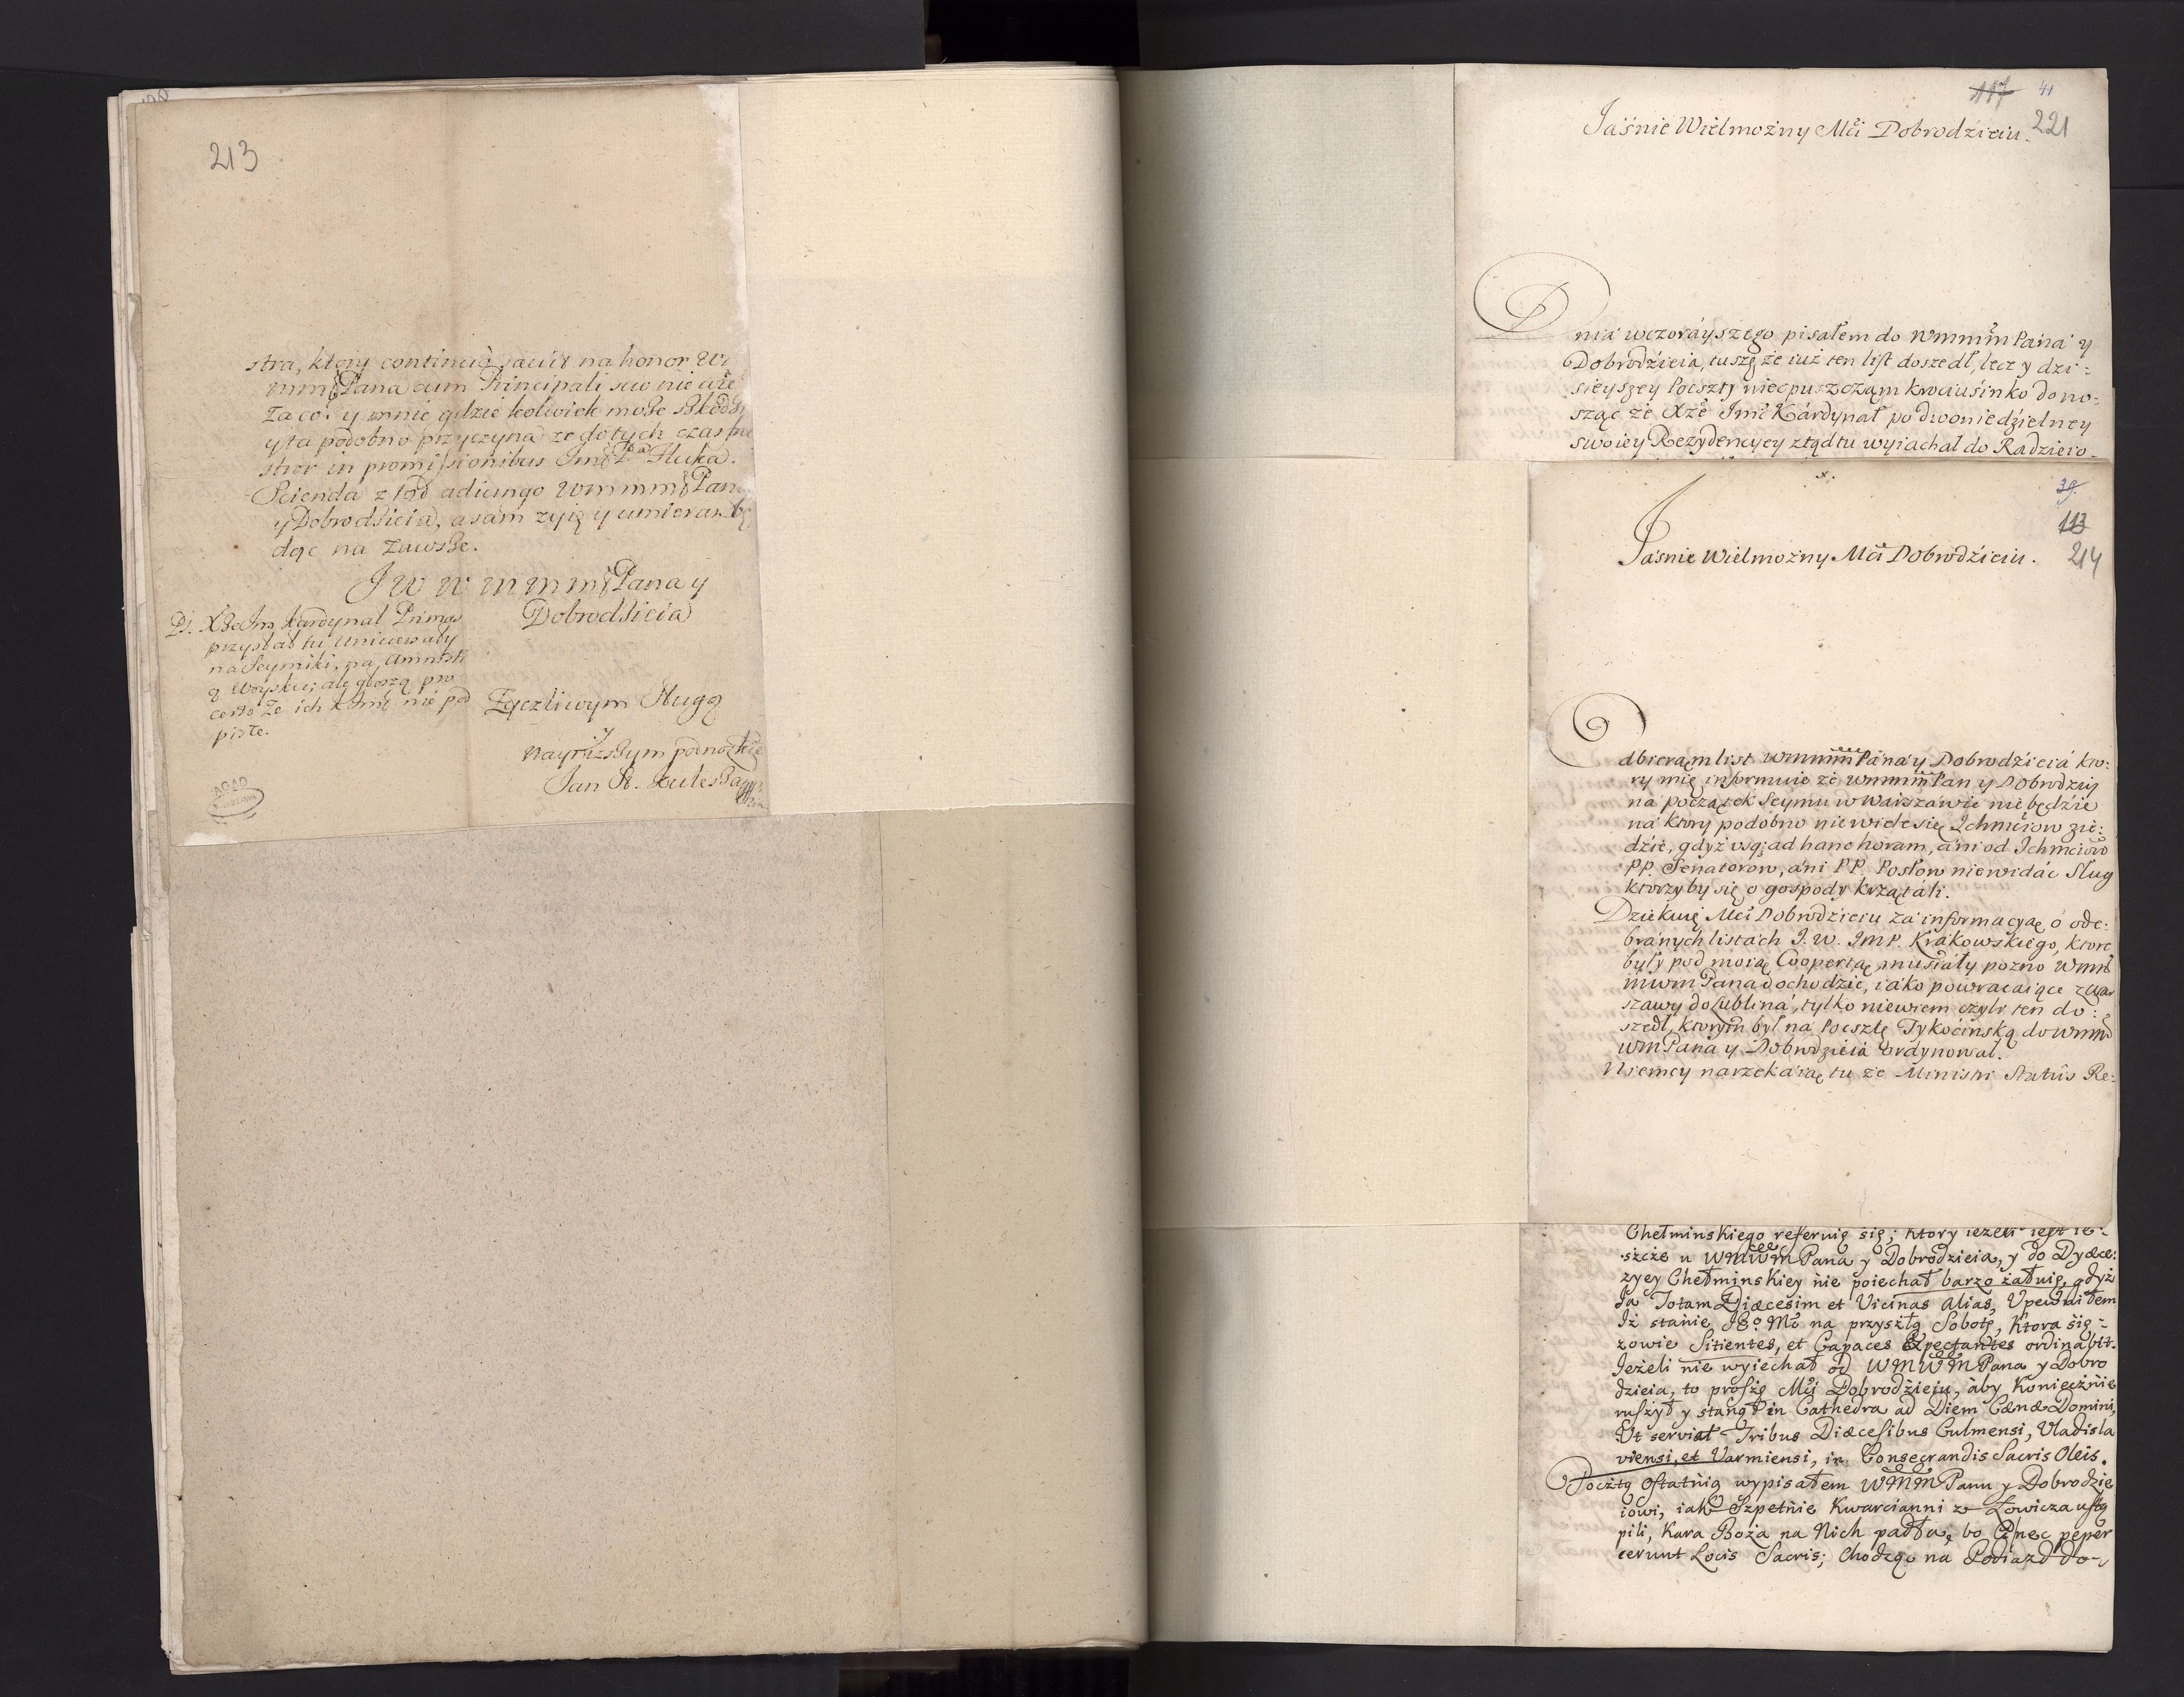 213
stra, ktory continuo jacuit na honor W
mmm Pana cum Principali suo nie
za co y mnie gdzie kolwiek może szkodz
y ta podobno przyczyna ze dotych czas
in promissionibus Jmć Pa Hluka.
Scienda z tąd adiungo Wmmmm Pan
y Dobrodzieia, a sam zyię y umieram bę
dąc na zawsze.
J W W m m m Pana y
Dobrodzieia
Ps. Xże Jm Kardynał Primas
przysłał tu Uniwersały
na Seymiki, na Amnisti
ą Woysku; ale głoszą pro
certo że ich Kmć nie pod
pisze.
Zyczliwym Sługą
y
nayniższym podnoszkie
Jan
117 41
Jaśnie Wielmożny Mći Dobrodzieiu. 221
Dnia wczorayszego pisałem do Wmmm Pana y
Dobrodzieia, tuszę że iuż ten list doszedł, lecz y dzi=
sieyszey Poczty nieopuszczam krociusinko dono=
sząc że Xże Jmć Kardynał po dwoniedzielney
swoiey Rezydencyey ztąd tu wyiachał do Radzieio=
39.
113
Jaśnie Wielmożny Mći Dobrodzieiu. 214
Odbieram list Wmmm Pana y Dobrodzieia kto=
ry mię informuie że Wmmm Pan y Dobrodziey
na początek Seymu w Warszawie nie będzie
na ktory podobno niewiele się Ichmciow zie=
dzie, gdyż usq; ad hanc horam, ani od Ichmciow
PP. Senatorow, ani PP. Posłow niewidać Sług
ktorzyby się o gospody krzątali.
Dziekuię Mći Dobrodzieiu za informacyą o ode=
branych listach J. W. JmP. Krakowskiego, ktore
były pod moią Coopertą, musiały pozno Wmm
mwm Pana dochodzic, iako powracaiące z War
szawy do Lublina, tylko niewiem czyli ten do=
szedł, ktorym był na Pocztę Tykocinską do Wmm
wm Pana y Dobrodzieia ordynował.
Niemcy narzekaią tu ze Ministri Statûs Re=
Chełminskiego referuię się; ktory ieżeli iest ie=
szcze u WMWM Pana y Dobrodzieia, y do Dyæce:
zyey Chełminskiey nie poiechał barzo żałuię, gdyż
Ja Totam Diæcesim et Vicinas alias, Upewniłem
Iż stanie Jego Mć na przyszłą Sobotę, Ktora się=
zowie Sitientes, et Capaces Expectantes ordinabit.
Jeżeli nie wyiechał od WMWM Pana y Dobro
dzieia, to proszę Mći Dobrodzieiu, aby Koniecznie
ruszył y stanął in Cathedra ad Diem Cænæ Domini,
Ut serviat Tribus Diæcesibus Culmensi, Vladisla
viensi, et Varmiensi, in Consecrandis Sacris Oleis.
Pocztą ostatnią wypisałem WMM Panu y Dobrodzie
iowi, iak Szpetnie Kwarcianni z Łowicza ustą
pili, Kara Boża na Nich padła, bo nec peper
cerunt Locis Sacris; Chodząc na Podiazd do-